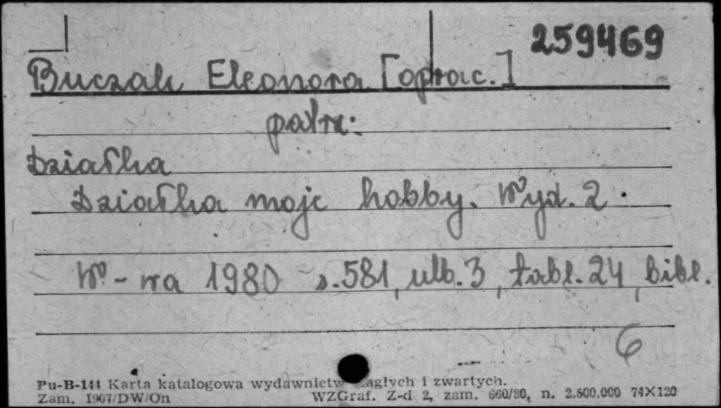 259469
Buczak Eleonora [oprac.]
patrz:
Działka
Działka moje hobby. Wyd. 2.
W-wa 1980 s. 581, ulb. 3, tabl. 24, bibl.
6
Pu-B-144 Karta katalogowa wydawnictw ciągłych i zwartych.
Zam. 1907/DW/On WZGraf. Z-d 2, zam. 660/80, n. 2.800.000 74×120